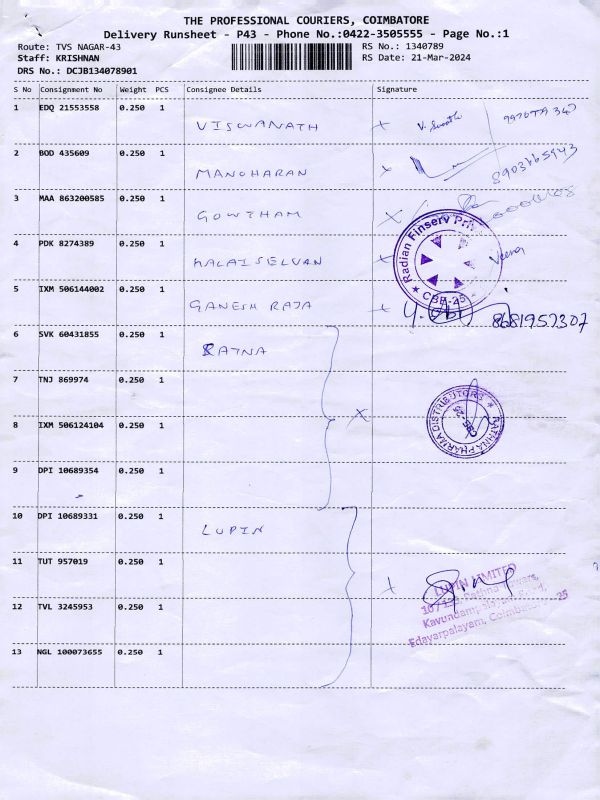 THE PROFESSIONAL COURIERS, COIMBATORE
Delivery Runsheet - P43 - Phone No.:0422-3505555 - Page No.:1
Route: TVS NAGAR-43
RS No.: 1340789
Staff: KRISHNAN
RS Date: 21-Mar-2024
DRS No.: DCJB134078901
S No Consignment No Weight PCS Consignee Details Signature
1 EDQ 21553558 0.250 1
VISWANATH x
2 BOD 435609 0.250 1
MANOHARAN x 8903665943
3 MAA 863200585 0.250 1
GOWTHAM x
4 PDK 8274389 0.250 1
KALAISELVAN x Veena
Radian Finserv
CBE-25
5 IXM 506144002 0.250 1
GANESH RAJA x 8681957307
6 SVK 60431855 0.250 1
RATNA
7 TNJ 869974 0.250 1
x
RATHNA PHARMA DISTRIBUTORS
CBE-25
8 IXM 506124104 0.250 1
9 DPI 10689354 0.250 1
10 DPI 10689331 0.250 1
LUPIN
11 TUT 957019 0.250 1
x
LUPIN LIMITED
Kavundampalayam
Edayarpalayam, Coimbatore - 25
12 TVL 3245953 0.250 1
13 NGL 100073655 0.250 1